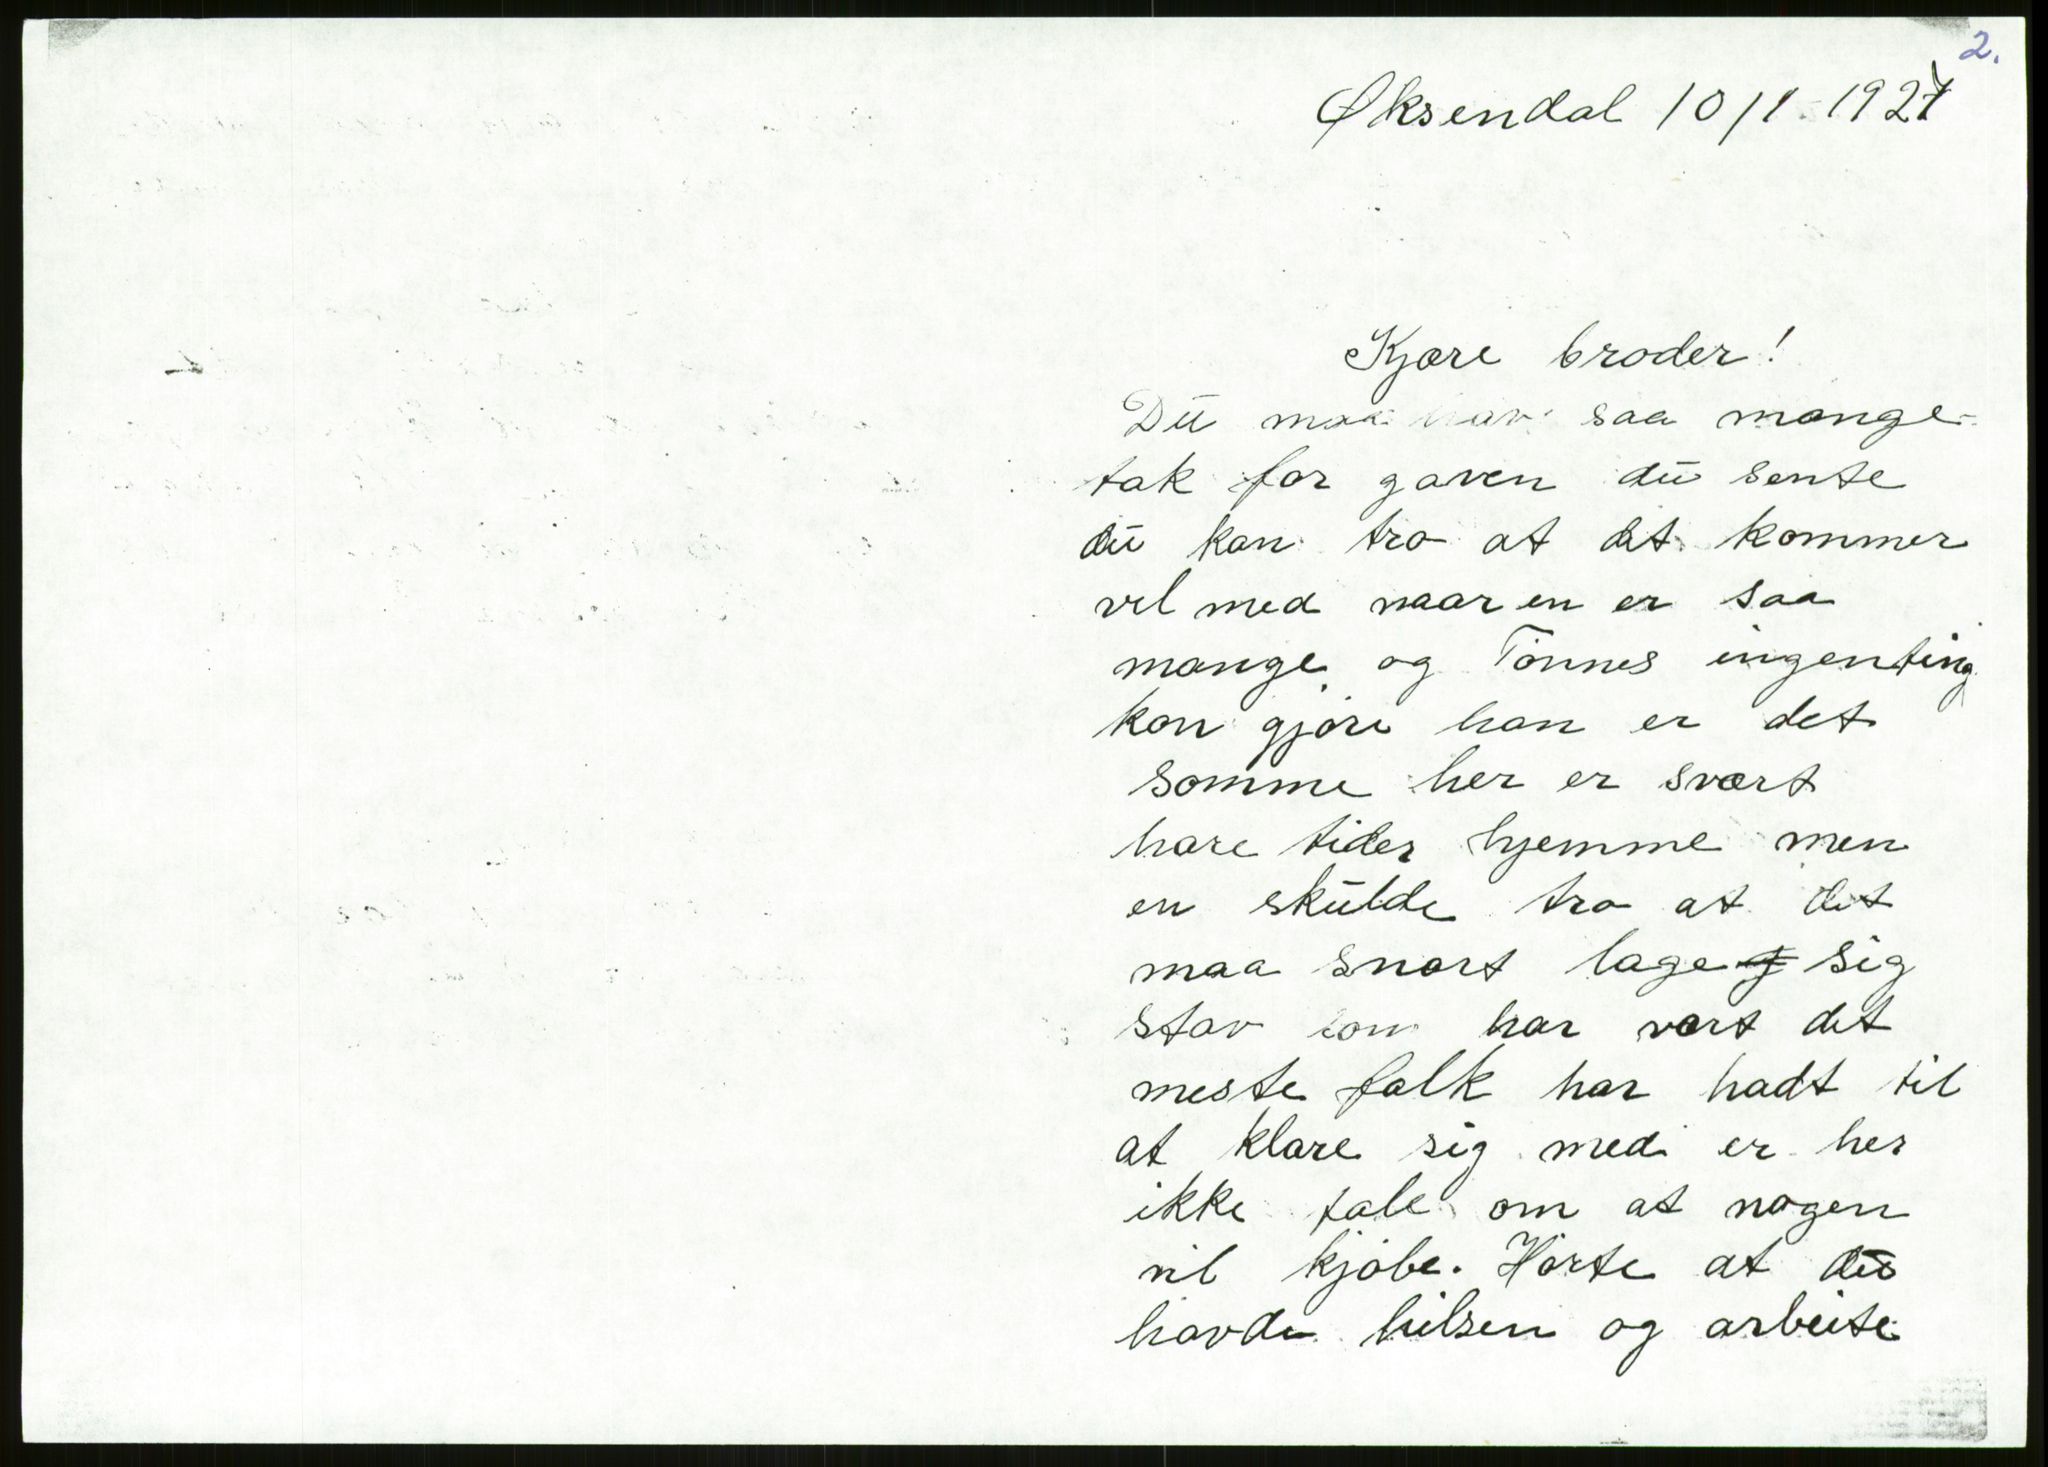 2.
Øksendal 10/1-1927
Kjære broder!
Dū maa hav saa mange
tak for gaven dū sente
dū kan tro at det kommer
vel med naar en er saa
mange og Tönnes ingenting
kan gjöre han er det
somme her er svært
hare tider hjemme men
en skūlde tro at det
maa snart lage sig
stav som har vært det
meste falk har hadt til
at klare sig med er her
ikke tale om at nogen
vil kjöbe. Hörte at dū
havde hilsen og arbeite